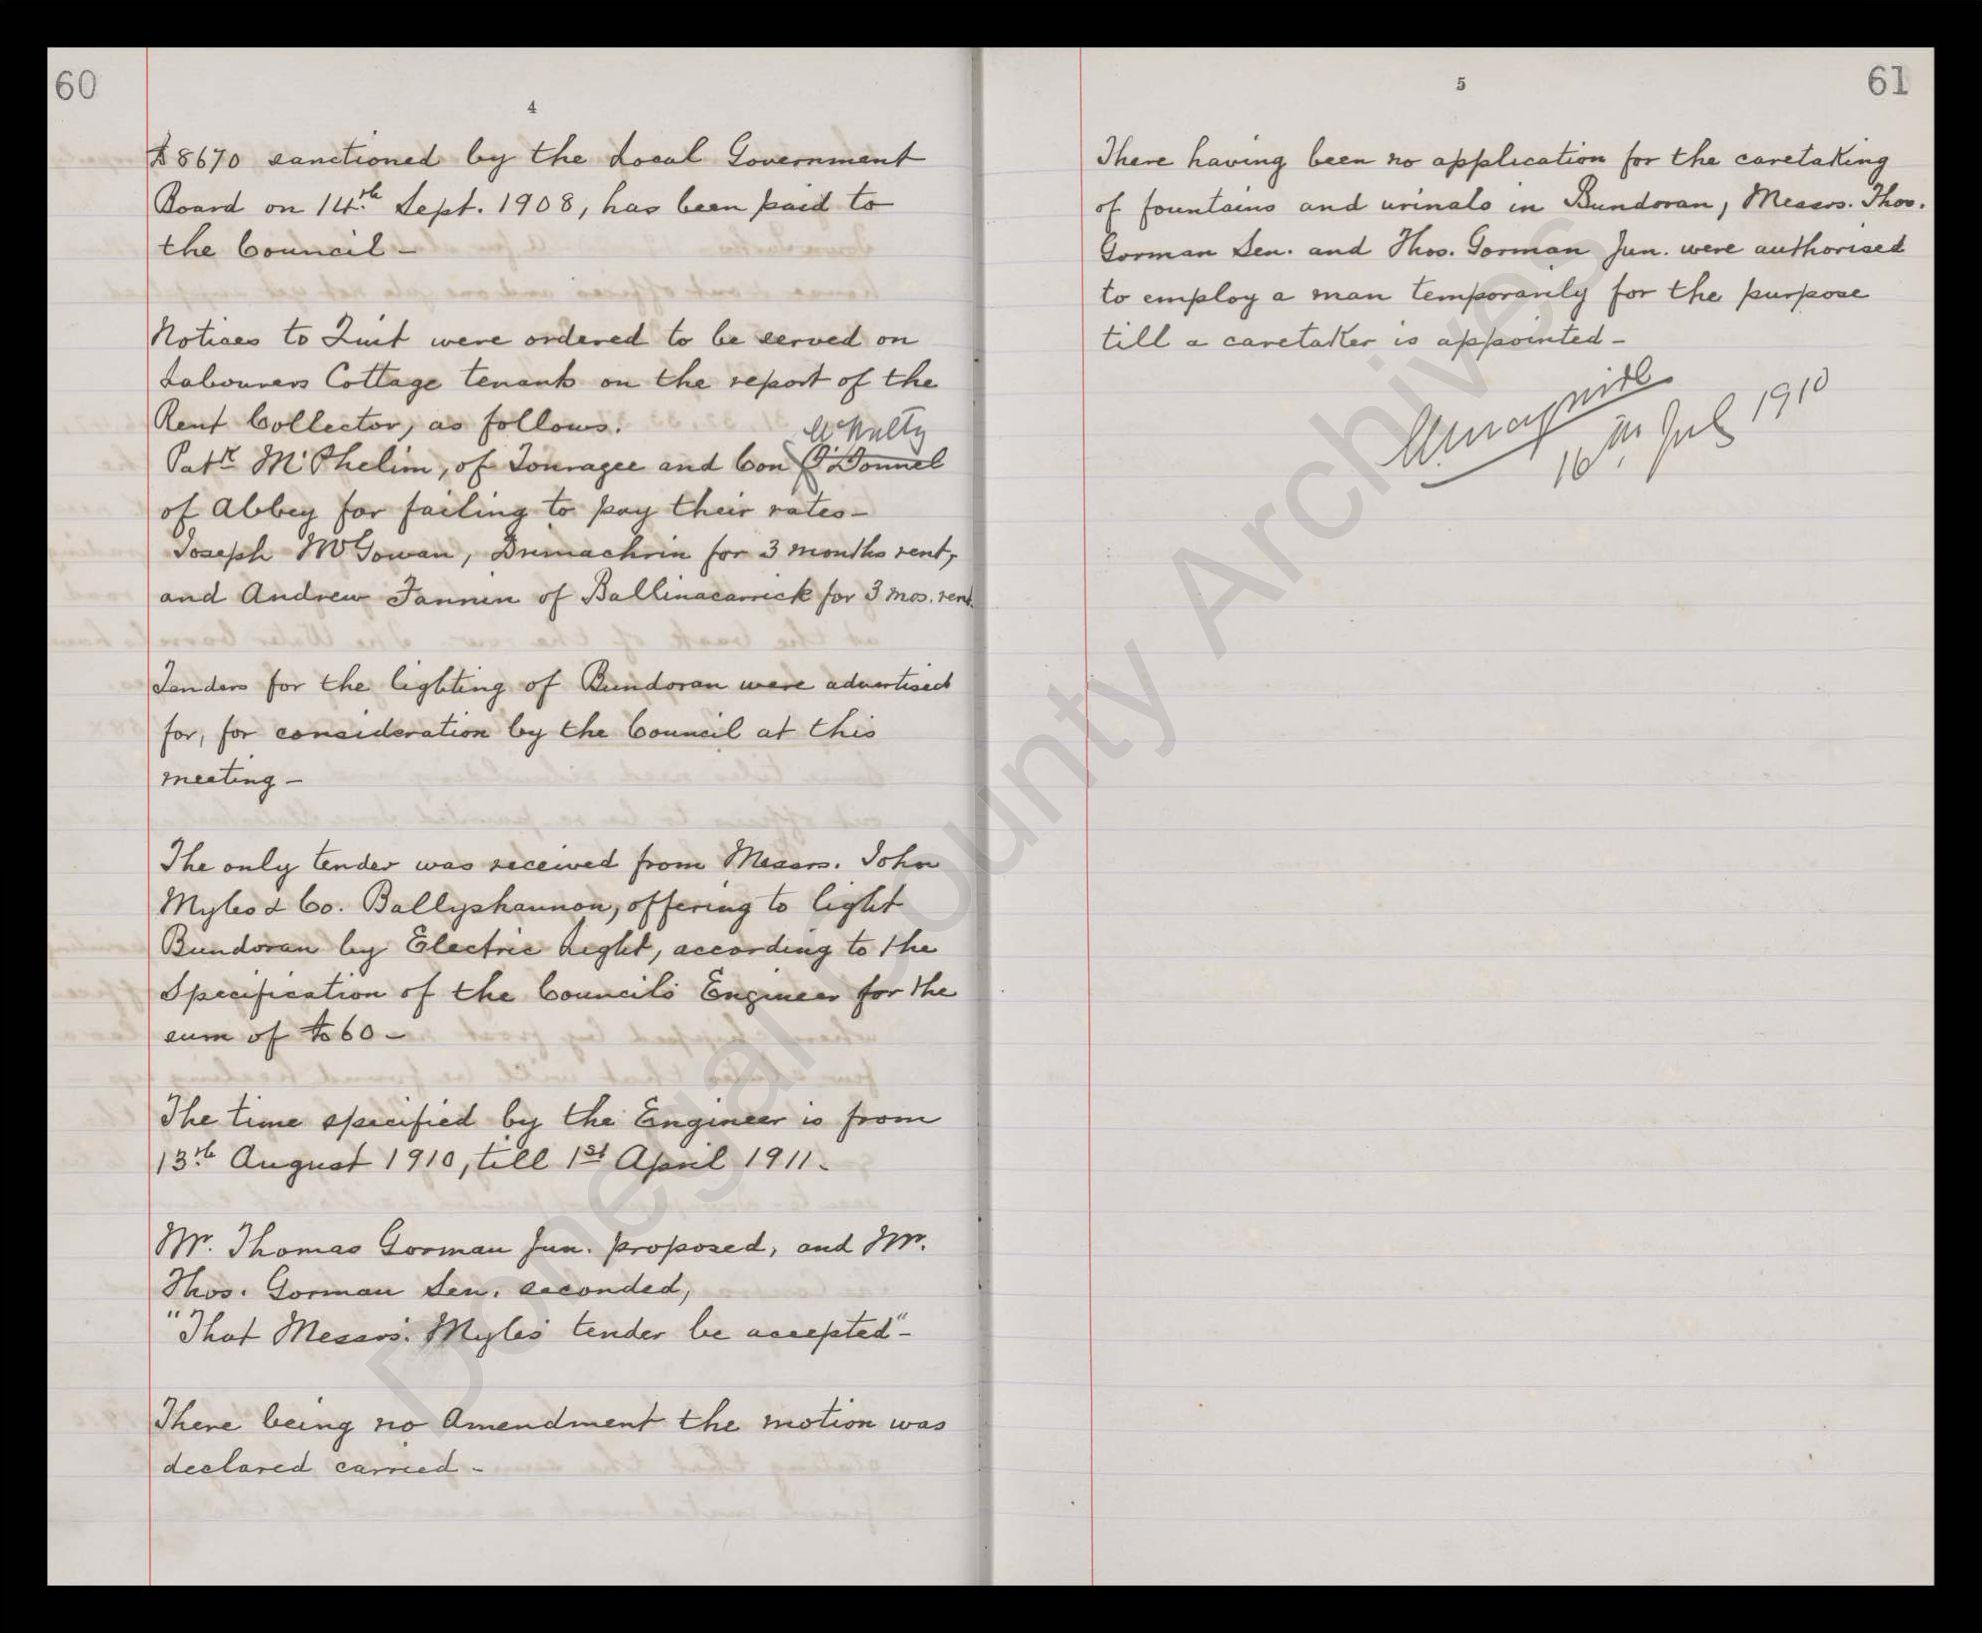 60
4
£8670 sanctioned by the Local Government
Board on 14th Sept. 1908, has been paid to
the Council -
Notices to Quit were ordered to be served on
Labourers Cottage tenants on the report of the
Rent Collector, as follows.
McNulty
Patk McPhelim, of Tonragee and Con O'Donnel
of Abbey for failing to pay their rates -
Joseph McGowan, Drumachrin for 3 months rent,
and Andrew Fannin of Ballinacarrick for 3 mos. rent.
Tenders for the lighting of Bundoran were advertised
for, for consideration by the Council at this
meeting -
The only tender was received from Messrs. John
Myles & Co. Ballyshannon, offering to light
Bundoran by Electric Light, according to the
Specification of the Council's Engineer for the
sum of £60 -
The time specified by the Engineer is from
13th August 1910, till 1st April 1911.
Mr. Thomas Gorman Jun. proposed, and Mr.
Thos. Gorman Sen. seconded,
"That Messrs. Myles' tender be accepted" -
There being no Amendment the motion was
declared carried -
61
5
There having been no application for the caretaking
of fountains and urinals in Bundoran, Messrs. Thos.
Gorman Sen. and Thos. Gorman Jun. were authorised
to employ a man temporarily for the purpose
till a caretaker is appointed -
July 1910
Donegal County Archives